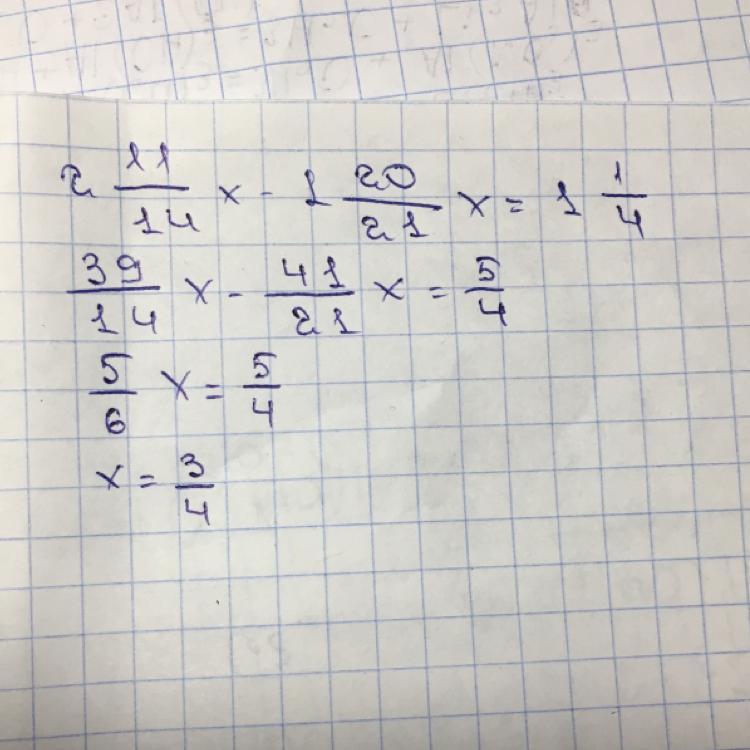 2 11/14 x - 1 20/21 x = 1 1/4
39/14 x - 41/21 x = 5/4
5/6 x = 5/4
x = 3/4